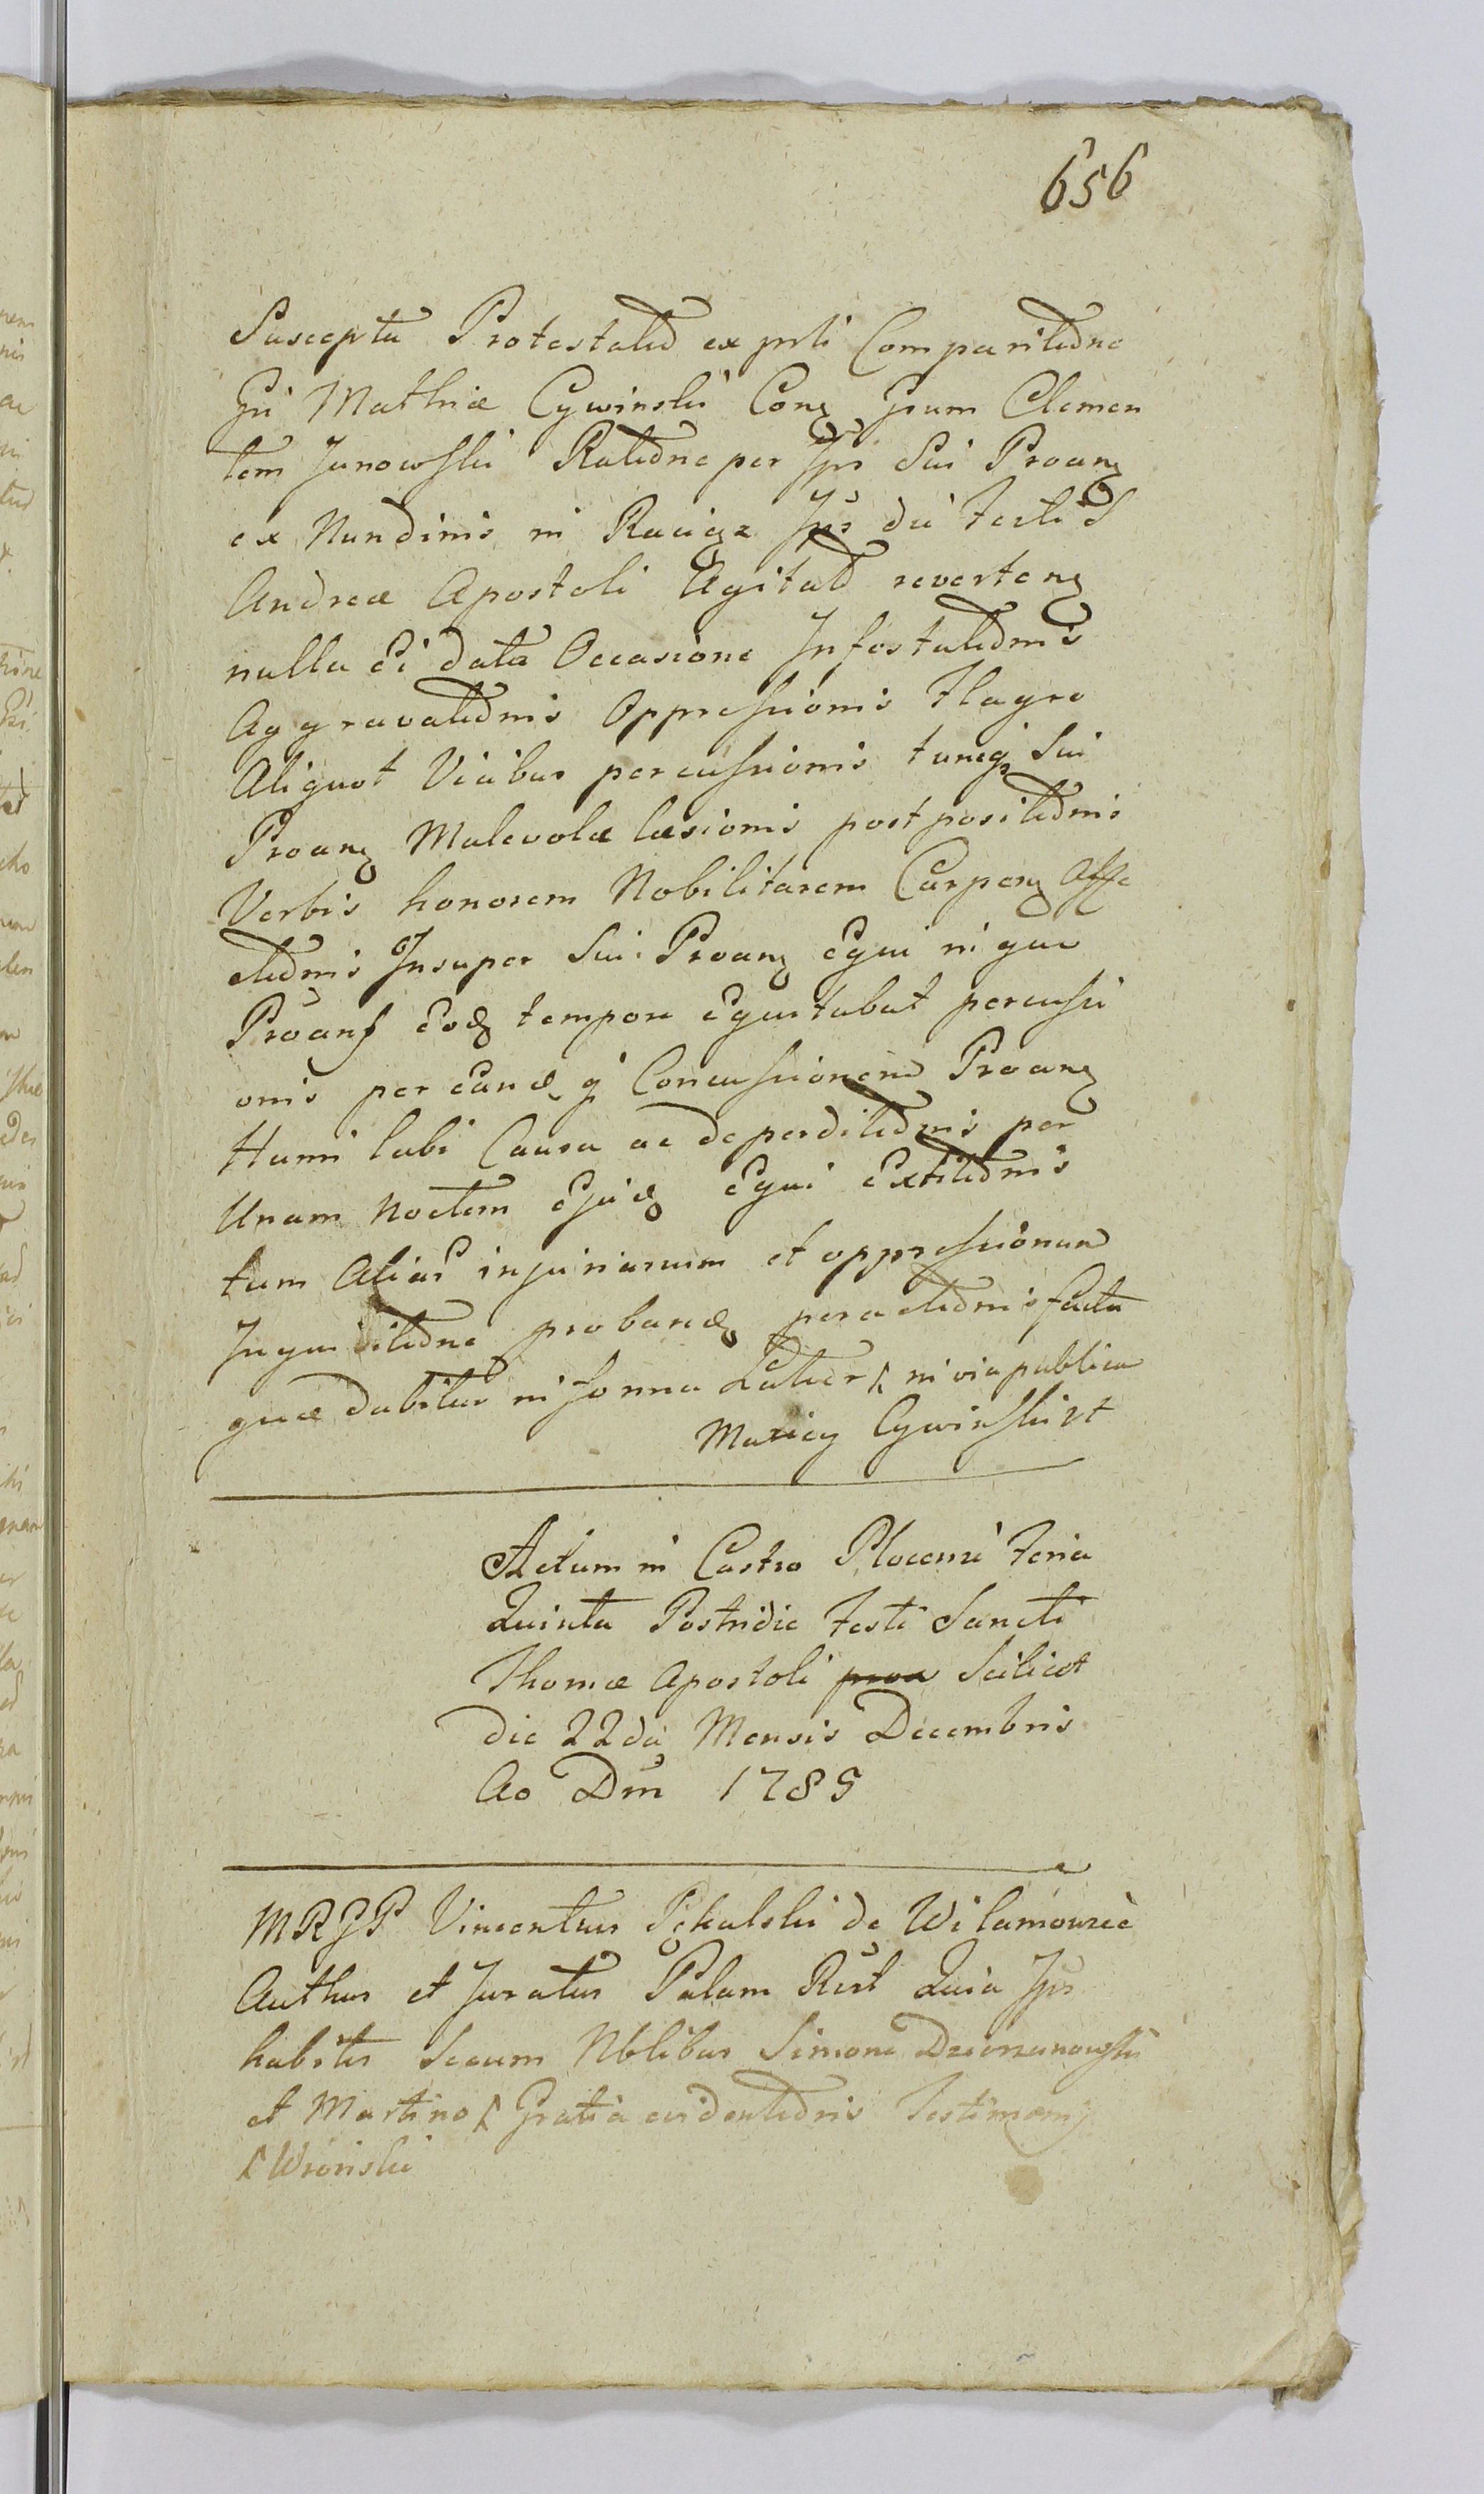 656
Suscepta Protestatio ex prti Comparitione
Gsi Mathiæ Cywinski Conq Gsum Clemen
tem Janowski Ratione per Ips Sui Proanq
ex Nundinis in Raciąz Ips die Festi S
Andreæ Apostoli Agitatis revertenq
nulla Ei data Occasione Infestationis
Aggravationis Oppressionis Flagro
Aliquot Vicibus percussionis tuncq Sui
Proanq Malevolæ læsionis postpositionis
Verbis honorem Nobilitarem Carpenq Affe
ctionis Insuper Sui Proanq Equi in quo
Proans Eodq tempore Equitabat percussi
onis per Eandq q Concussionem Proanq
Humi labi Causa ac deperditionis per
Unam Noctem Ejusdq Equi Extitionis
tum Aliar injuriarum et oppressionum
Inquisitione probandq peractionis facta
quæ dabitur in forma Latior / in via publica
Maciey Cywinski rt
Actum in Castro Plocensi Feria
Quinta Postridie Festi Sancti
Thomæ Apostoli proa Scilicet
die 22da Mensis Decembris
Ao Dni 1785
MRGP Vincentius Pękalski de Wilamowice
Authus et Juratus Palam Rect Quia Ips
habitis Secum Nblibus Simone Dzierzanowski
et Martino / Gratia evidentionis Testimonij
/ Wronski